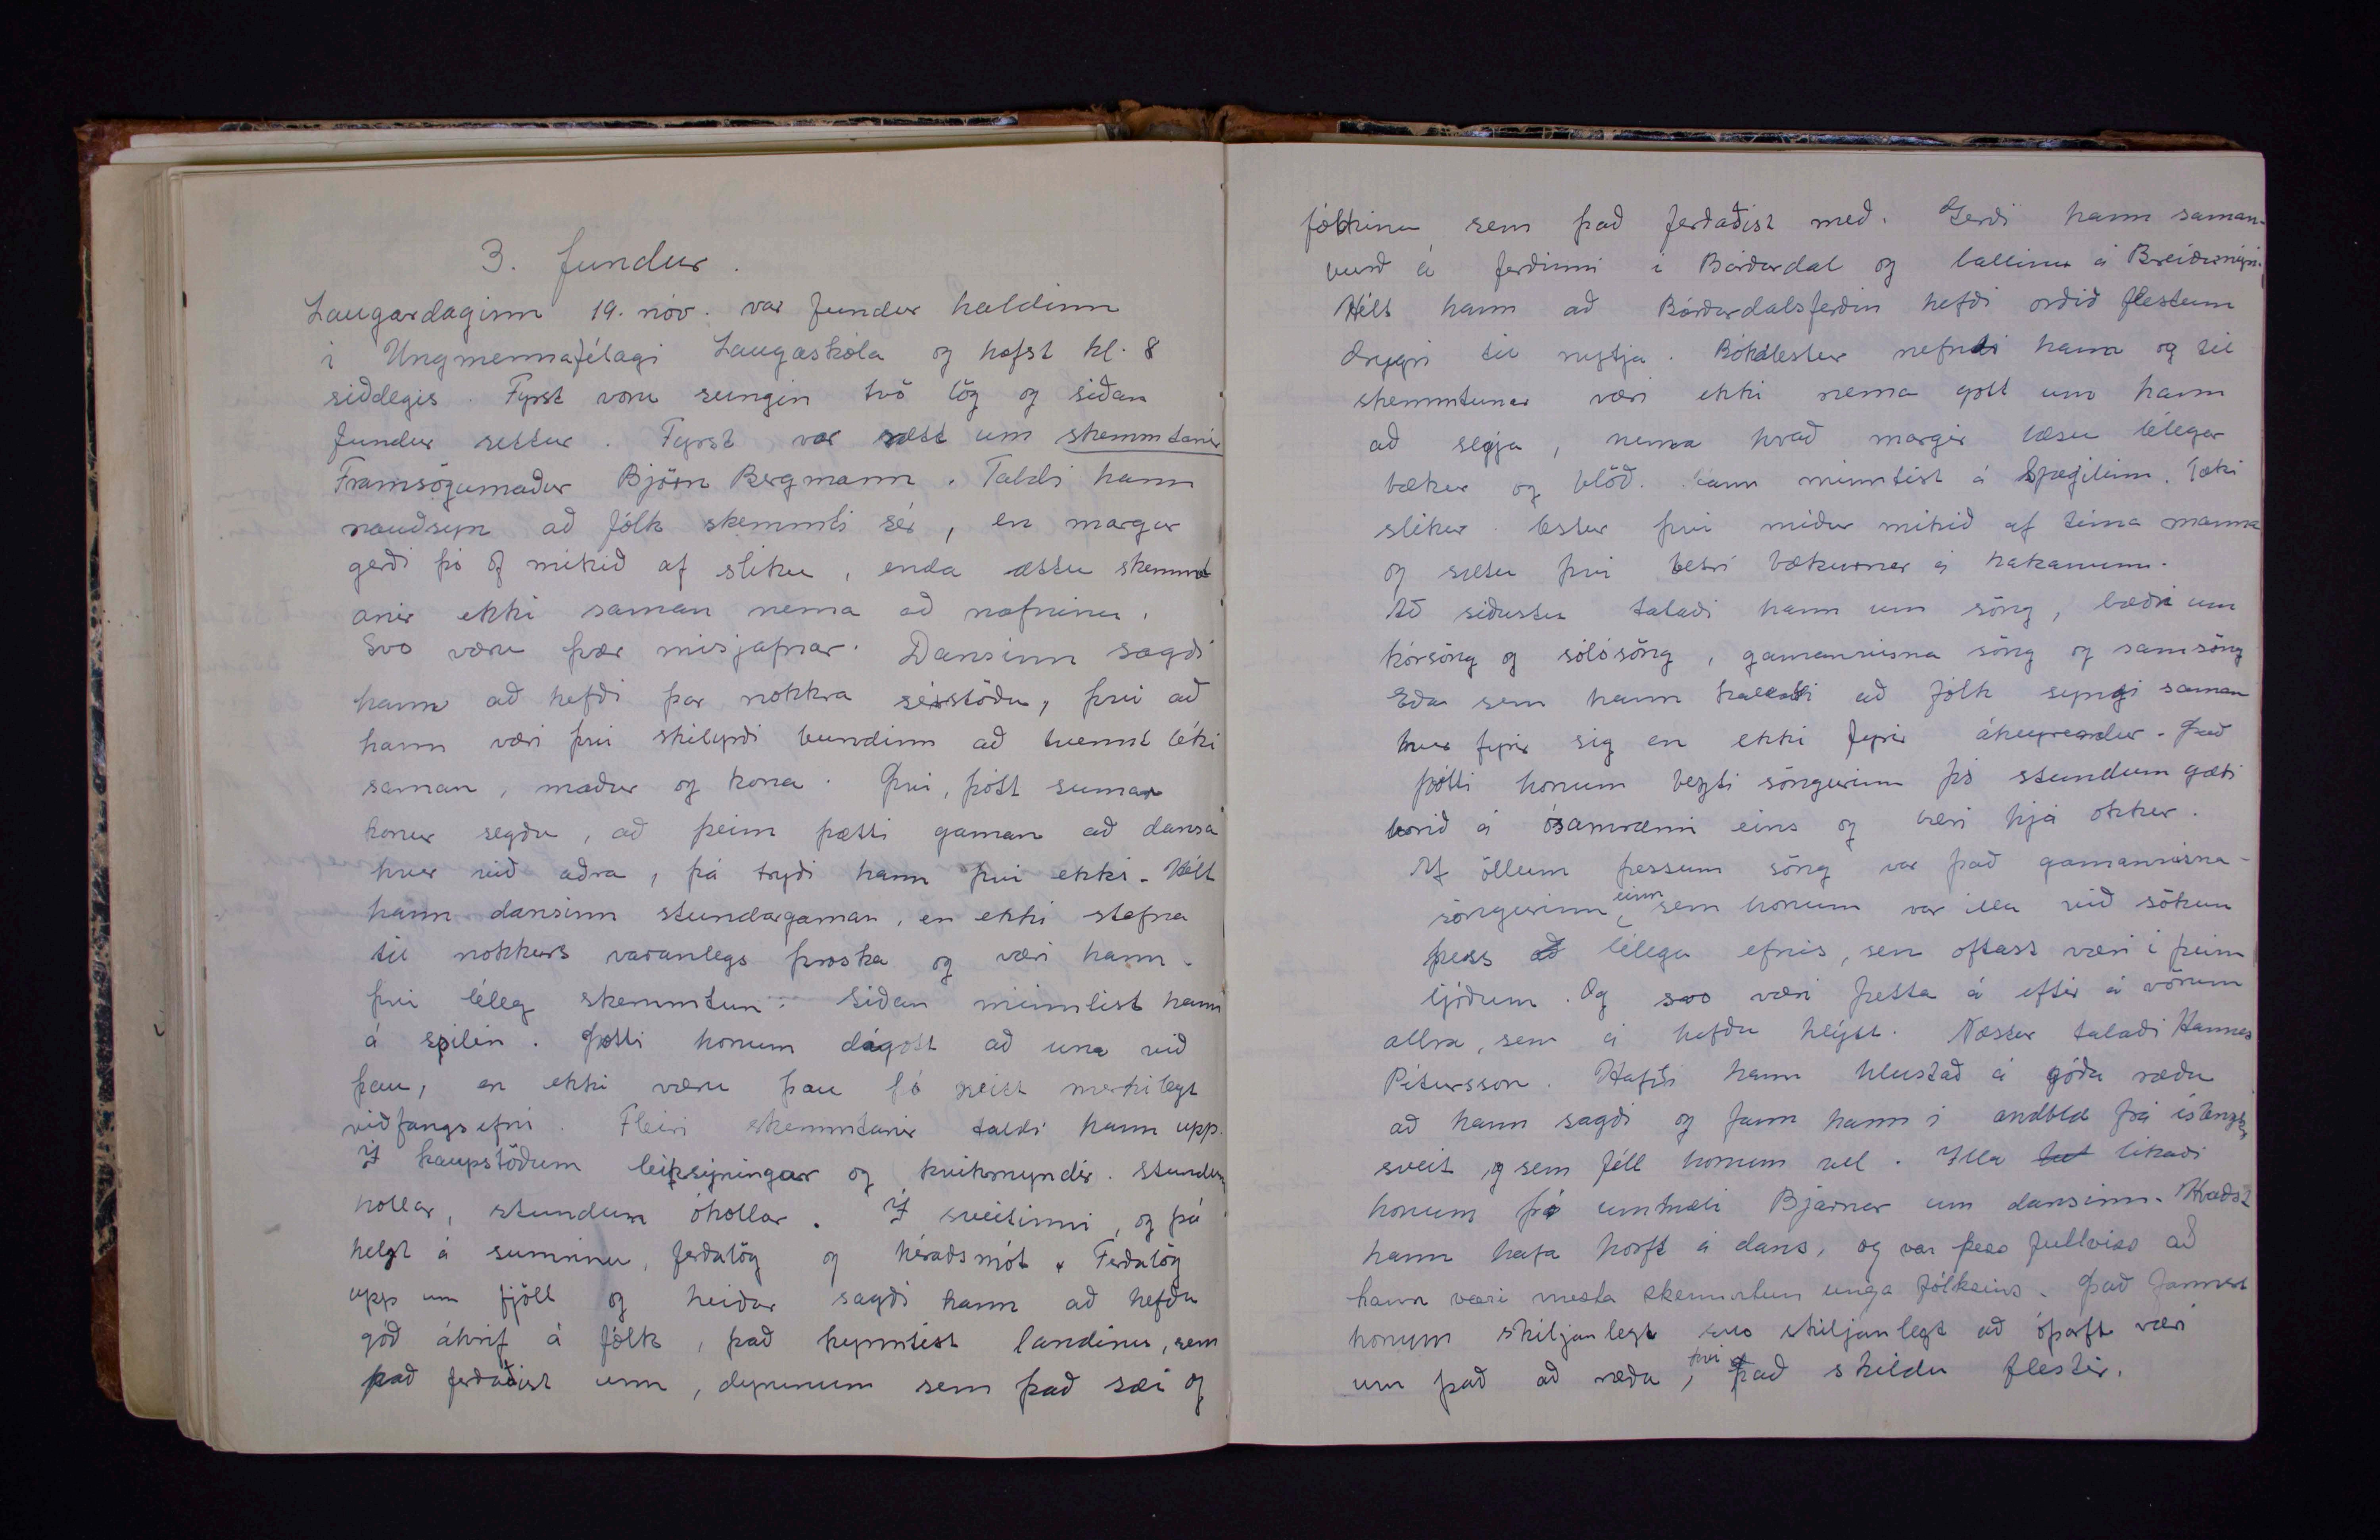 3. fundur.
Laugardaginn 19. nóv. var fundur haldinn
i Ungmennafélagi Laugaskóla og hofst kl. 8
siðdegis. Fyrst voru sungin tvö lög og siðan
fundur settur. Fyrst var rætt um skemmtanir
Framsögumaður Björn Bergmann. Taldi hann
nauðsyn að fólk skemmti sér, en margur
gerði þó of mikið af sliku, enda ættu skemmt
anir ekki saman nema að nafninu.
Svo væru þær misjafnar. Dansinn sagði
hann að hefði þar nokkra sérstöðu, þvi að
hann væri þvi skilyrði bundinn að tvennt léki
saman, maður og kona. Þvi, þótt sumar
konur segðu, að þeim þætti gaman að dansa
hver við aðra, þá tryði hann þvi ekki. Hélt
hann dansinn stundargaman, en ekki stefna
til nokkurs varanlegs þroska og væri hann
þvi léleg skemmtun. Siðan minntist hann
á spilin. Þótti honum dágott að una við
þau, en ekki væru þau þó neitt merkilegt
viðfangsefni. Fleiri skemmtanir taldi hann upp.
Í kaupstöðum leiksýningar og kvikmyndir. Stundum
hollar, stundum óhollar. Í sveitinni, og þá
helzt á sumrinu, ferðalög og héraðsmót. Ferðalög
upp um fjöll og heiðar sagði hann að hefðu
góð áhrif á fólk, það kynntist landinu, sem
það ferðaðist um, dýrunum sem það sæi og
fólkinu sem það ferðaðist með. Gerði hann saman-
burð á ferðinni i Bárðardal og ballinu á Breiðumýri.
Hélt hann að Bárðardalsferðin hefði orðið flestum
drýgri til nytja. Bóklestur nefndi hann og til
skemmtunar væri ekki nema gott um hann
að segja, nema hvað margir læsu lélegar
bækur og blöð. Hann minntist á Spegilinn. Tæki
slikur lestur þvi miður mikið af tima manna
og sætu þvi betri bækurnar á hakanum.
Að siðustu talaði hann um söng, bæði um
kórsöng og sólósöng, gamanvisna söng og samsöng
Eða sem hann kallaði að fólk syngi saman
hver fyrir sig en ekki fyrir áheyrendur. Það
þótti honum bezti söngurinn þó stundum gæti
borið á ósamræmi eins og væri hjá okkur.
Af öllum þessum söng var það gamanvisna-
söngurinn einn sem honum var illa við sökum
þess að lélega efnis, sem oftast væri i þeim
ljóðum. Og svo væri þetta á eftir á vörum
allra, sem á hefðu hlýtt. Næstur talaði Hannes
Pétursson. Hafði hann hlustað á góða ræðu
að hann sagði og fann hann i andblæ frá
sveit, og sem féll honum vel. Illa likaði
honum þó ummæli Bjarnar um dansinn. Kvaðst
hann hafa horft á dans, og var þess fullviss að
hann væri mesta skemmtun unga fólksins. Það fannst
honum skiljanlegt svo skiljanlegt að óþarft væri
um það að ræða, þvi það skildu flestir.